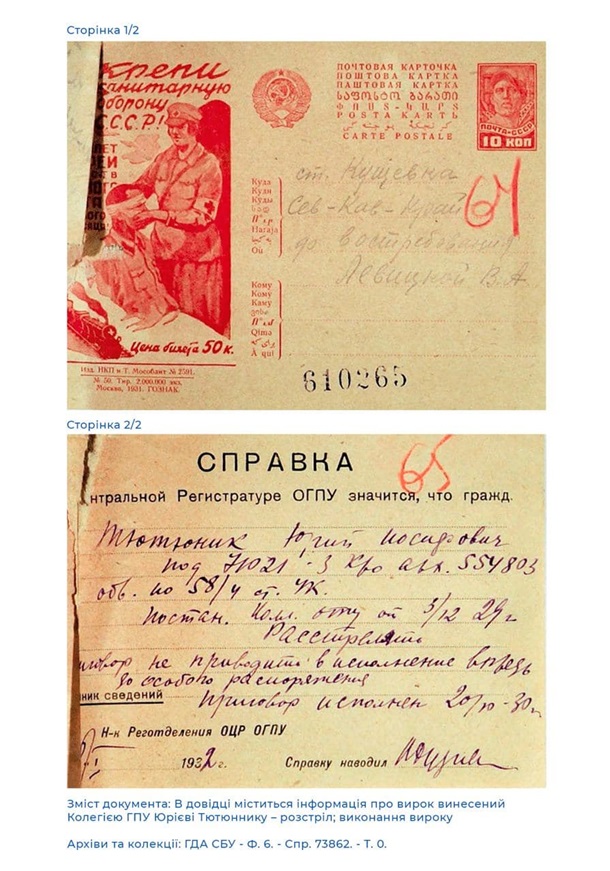 Сторінка 1/2
Крепи
санитарную
оборону
С.С.С.Р.!
Цена билета 50 к.
Изд. НКП и Т. Мособлит № 2591.
№ 50. Тир. 2.000.000 экз.
Москва, 1931. ГОЗНАК.
ПОЧТОВАЯ КАРТОЧКА
ПОШТОВА КАРТКА
ПАШТОВАЯ КАРТКА
POSTA KARTЬ
CARTE POSTALE
ПОЧТА-СССР
10 КОП
64
Куда
Куди
Куды
Haraja
Où
ст. Кущевка
Сев-Кав-Край
до востребования
Левицкой В.А.
Кому
Кому
Каму
Qima
A qui
610265
Сторінка 2/2
65
СПРАВКА
нтральной Регистратуре ОГПУ значится, что гражд.
Тютюник Юрий Иосифович
под 71021 - 3 КРО арх. 554803
обв. по 58/4 ст. УК.
Постан. Колл. ОГПУ от 3/12 29 г
Расстрелять
говор не приводить в исполнение впредь
до особого распоряжения
ник сведений Приговор исполнен 20/10-30 г
Н-к Реготделения ОЦР ОГПУ
1932 г. Справку наводил
Зміст документа: В довідці міститься інформація про вирок винесений
Колегією ГПУ Юрієві Тютюннику – розстріл; виконання вироку
Архіви та колекції: ГДА СБУ - Ф. 6. - Спр. 73862. - Т. 0.